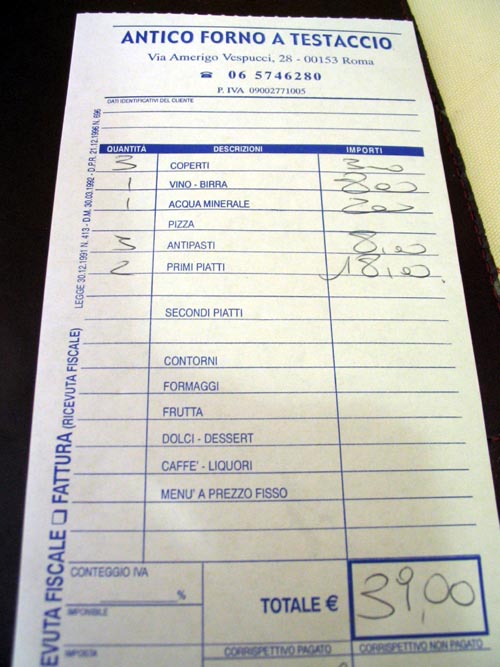 ANTICO FORNO A TESTACCIO
Via Amerigo Vespucci, 28 - 00153 Roma
☎ 06 5746280
P. IVA 09002771005
DATI IDENTIFICATIVI DEL CLIENTE
QUANTITÀ DESCRIZIONI IMPORTI
3 COPERTI 3,00
1 VINO - BIRRA 8,00
1 ACQUA MINERALE 2,00
PIZZA
3 ANTIPASTI 8,00
2 PRIMI PIATTI 18,00
SECONDI PIATTI
CONTORNI
FORMAGGI
FRUTTA
DOLCI - DESSERT
CAFFE' - LIQUORI
MENU' A PREZZO FISSO
CONTEGGIO IVA
%
IMPONIBILE
IMPOSTA
TOTALE € 39,00
CORRISPETTIVO PAGATO CORRISPETTIVO NON PAGATO
EVUTA FISCALE ☐ FATTURA (RICEVUTA FISCALE)
LEGGE 30.12.1991 N. 413 - D.M. 30.03.1992 - D.P.R. 21.12.1996 N. 696